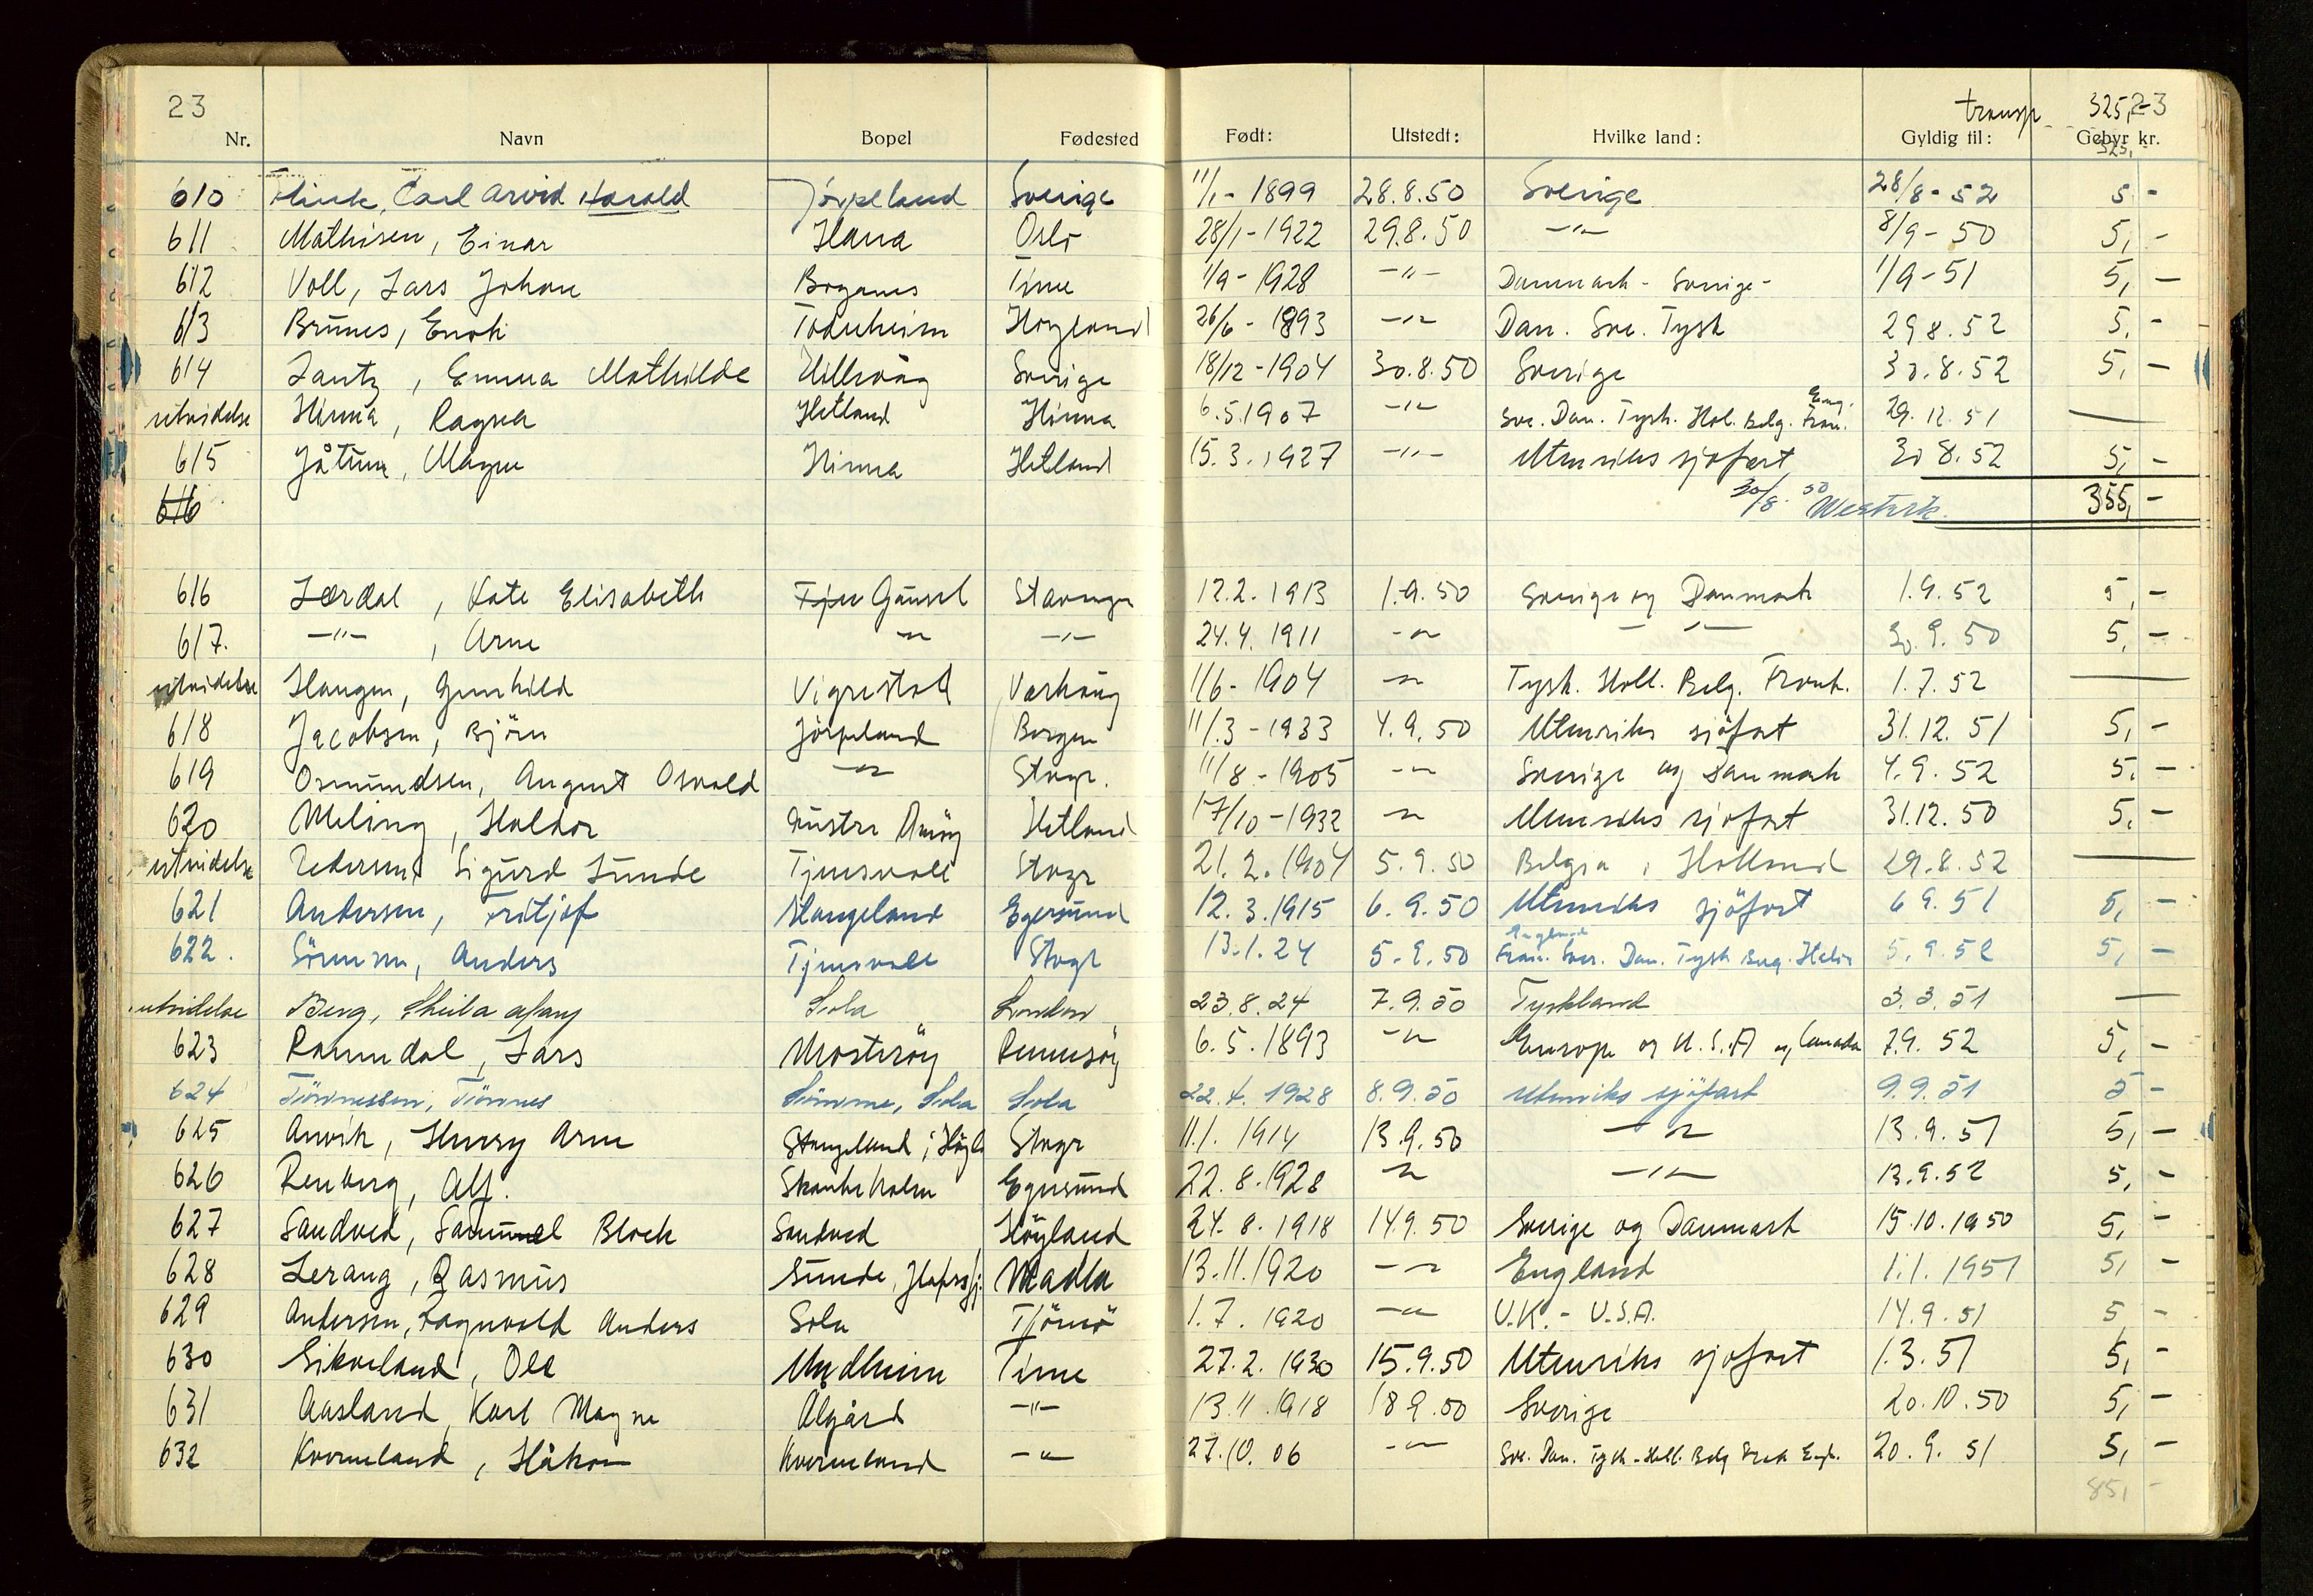 23 transp. 325,- 23
Nr. Navn Bopel Fødested Født: Utstedt: Hvilke land: Gyldig til: Gebyr kr.
325,-
610 Carl Arvid Harald Jörpeland Sverige 11/1-1899 28.8.50 Sverige 28/8-52 5-
611 Mathisen, Einar Hana Oslo 28/1-1922 29.8.50 -"- 8/9-50 5,-
612 Voll, Lars Johan Boganes Time 1/9-1928 -"- Danmark - Sverige - 1/9-51 5,-
613 Brunes, Enok Todnheim Høyland 26/6-1893 -"- Dan. Sve. Tysk 29.8.52 5,-
614 Lantz, Emma Mathilde Hillevåg Sverige 18/12-1904 30.8.50 Sverige 30.8.52 5,-
utvidelse Hinna, Ragna Hetland Hinna 6.5.1907 -"- Sve. Dan. Tysk. Hol. Belg. Fran. Eng. 29.12.51 —
615 Jåtun, Magne Hinna Hetland 15.3.1927 -"- Utenriks sjøfart 30.8.52 5,-
616 30/8.50 355,-
616 Lærdal, Kate Elisabeth Gausel Stavanger 12.2.1913 1.9.50 Sverige og Danmark 1.9.52 5,-
617. -"-, Arne -"- -"- 24.4.1911 -"- -"- 30.9.50 5,-
utvidelse Haugen, Gunhild Vigrestad Varhaug 1/6-1904 -"- Tysk. Holl. Belg. Frank. 1.7.52 —
618 Jacobsen, Björn Jörpeland Bergen 11/3-1933 4.9.50 Utenriks sjöfart 31.12.51 5,-
619 Osmundsen, August Osvald -"- Stvgr. 11/8-1905 -"- Sverige og Danmark 4.9.52 5,-
620 Meling, Haldor Austre Åmøy Hetland 17/10-1932 -"- Utenriks sjøfart 31.12.50 5,-
utvidelse Pedersen, Sigurd Sunde Tjensvoll Stvgr 21.2.1904 5.9.50 Belgia, Holland 29.8.52 —
621 Andersen, Fritjof Haugeland Egersund 12.3.1915 6.9.50 Utenriks sjöfart 6.9.51 5,-
622. Sörensen, Anders Tjensvoll Stvgr 13.1.24 5.9.50 England Fran. Sver. Dan. Tysk 5.9.52 5,-
utvidelse Berg, Sheila Mary Sola London 23.8.24 7.9.50 Tyskland 3.3.51 —
623 Ramndal, Lars Mosterøy Rennesøy 6.5.1893 -"- Europa og U.S.A og Canada 7.9.52 5,-
624 Tönnessen, Tönnes Sömme, Sola Sola 22.4.1928 8.9.50 Utenriks sjöfart 9.9.51 5-
625 Anvik, Henry Arne Stangeland i Høyl Stvgr 11.1.1914 13.9.50 -"- 13.9.51 5,-
626 Renberg, Alf. Skanseholm Egersund 22.8.1928 -"- -"- 13.9.52 5,-
627 Sandved, Samuel Block Sandved Höyland 24.8.1918 14.9.50 Sverige og Danmark 15.10.1950 5,-
628 Lerang, Rasmus Sunde, Hafrsfj. Madla 13.11.1920 -"- England 1.1.1951 5,-
629 Andersen, Ragnvald Anders Sola Tjömö 1.7.1920 -"- U.K. - U.S.A. 14.9.51 5-
630 Sikveland, Ole Undheim Time 27.2.1930 15.9.50 Utenriks sjøfart 1.3.51 5,-
631 Aasland, Karl Magne Ålgård -"- 13.11.1918 18.9.50 Sverige 20.10.50 5,-
632 Kverneland, Håkon Kverneland -"- 27.10.06 -"- Sve. Dan. Tysk-Holl. Belg Frak Engl. 20.9.51 5,-
85,-